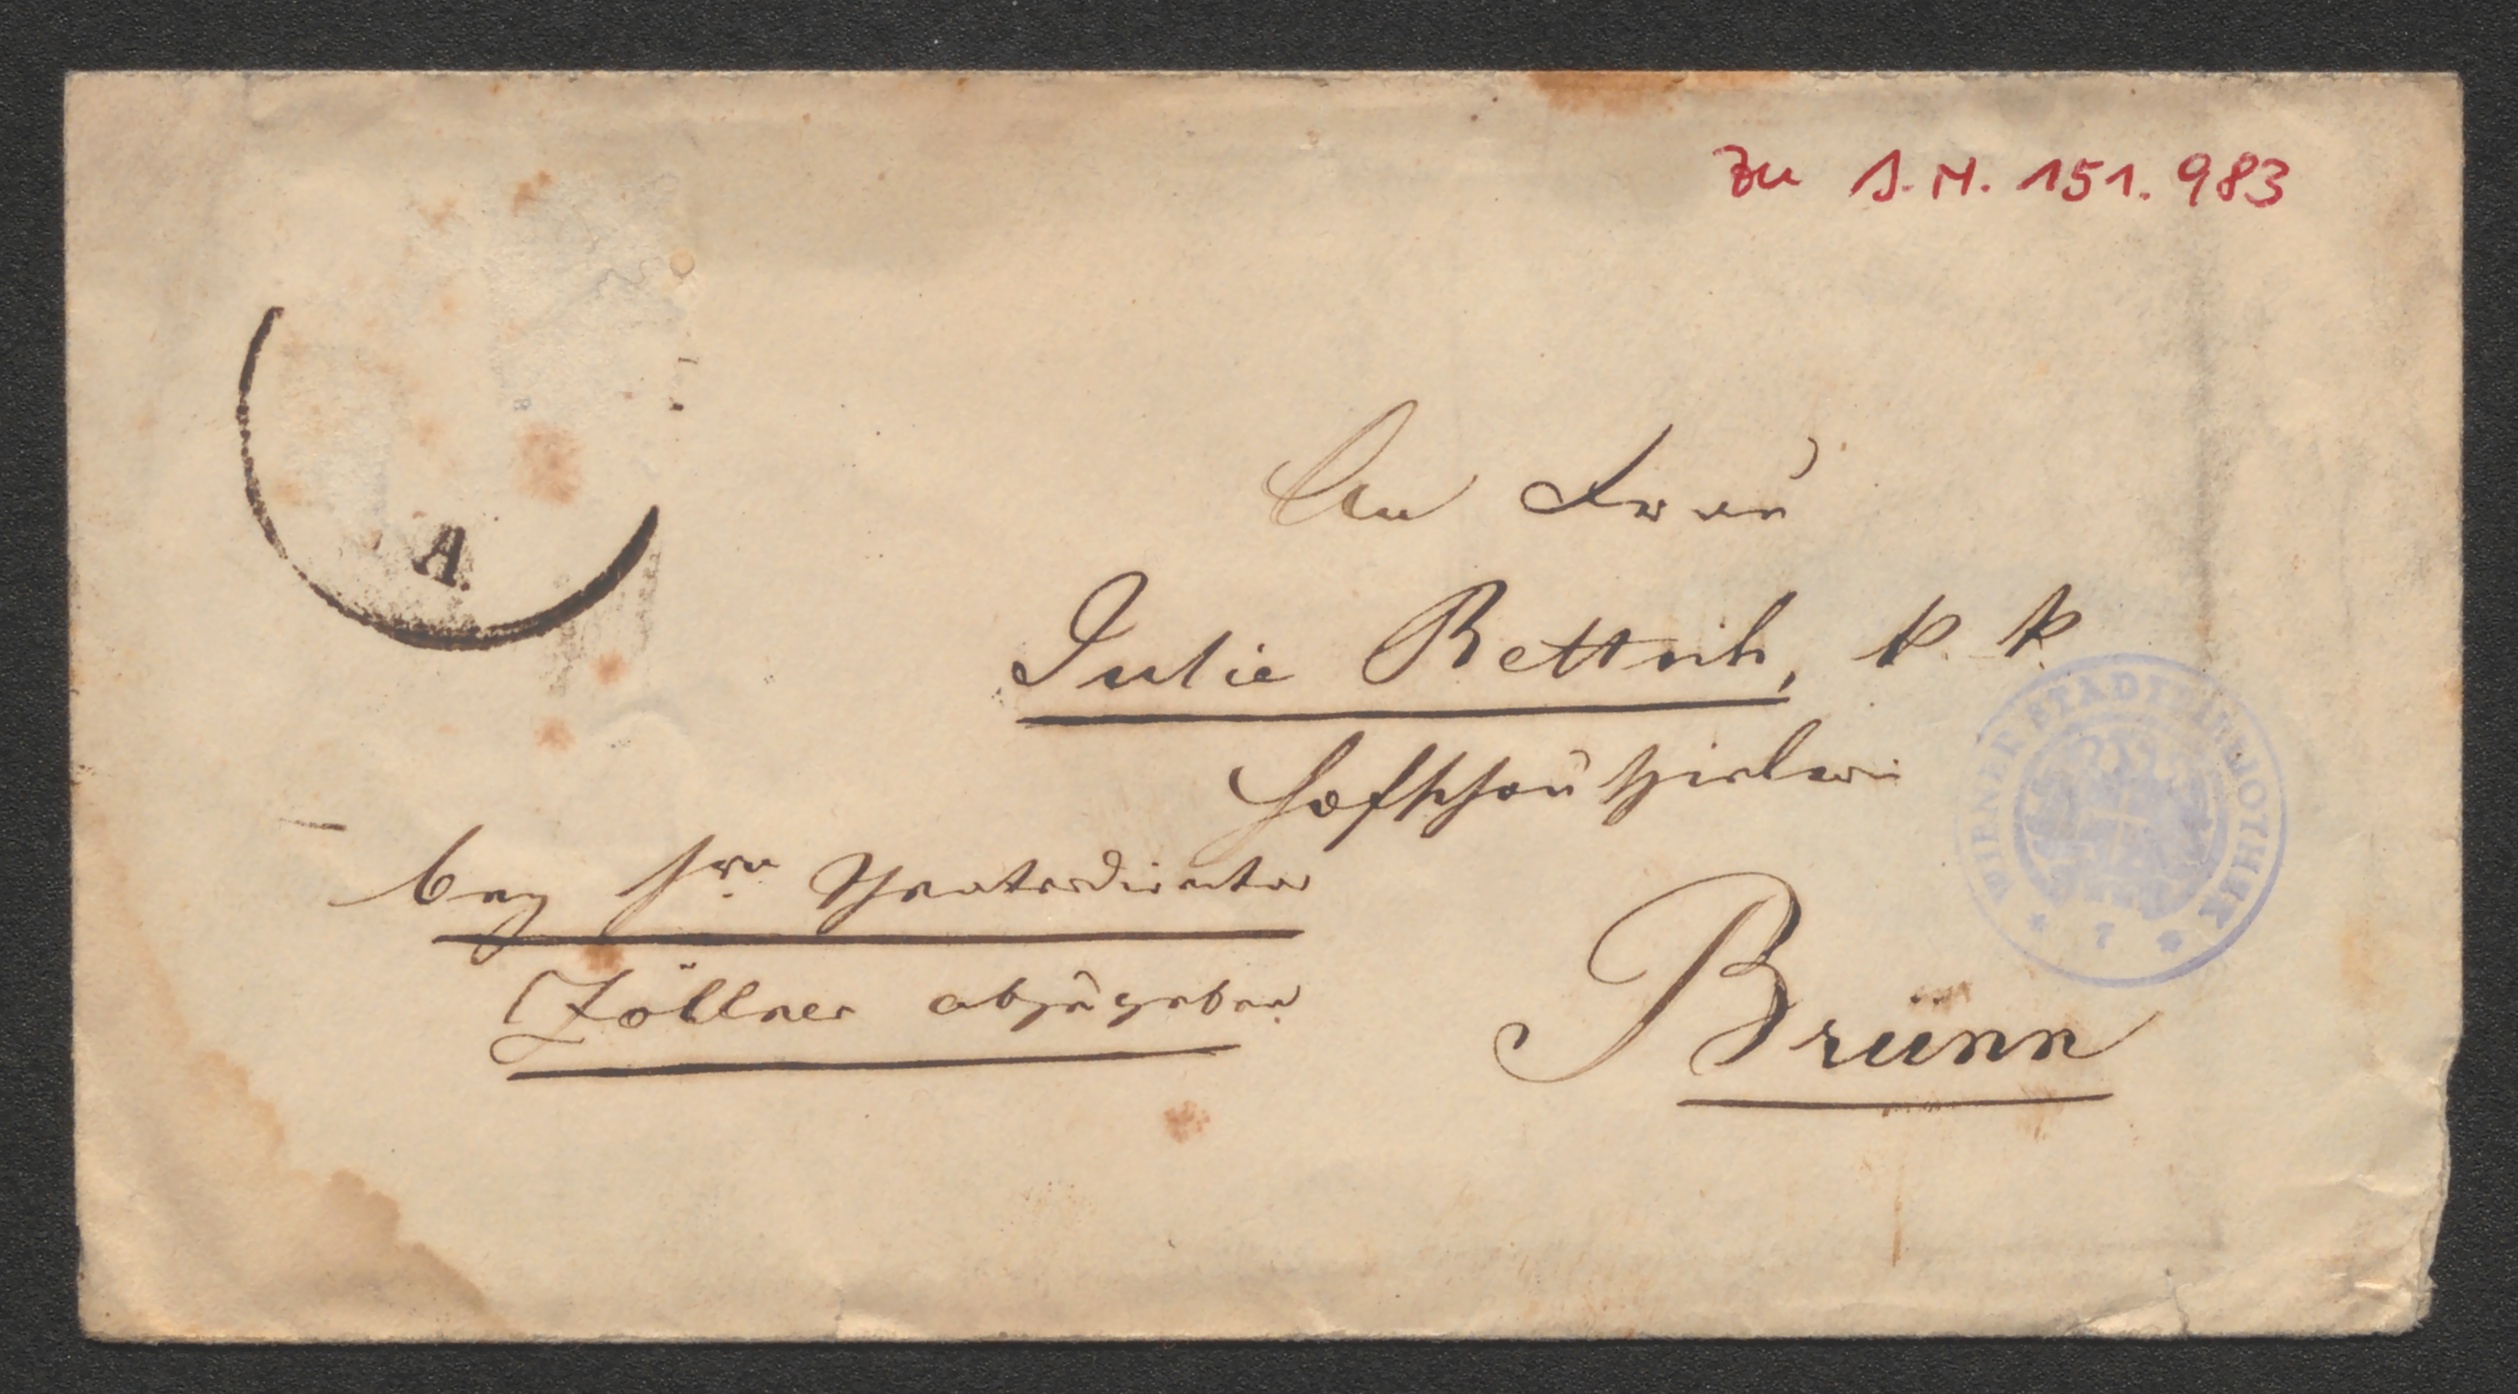 zu I.N. 151.983
A.
An Frau
Julie Rettich, k. k.
Hofschauspielerin
bey Hrn Theaterdirector
Zöllner abzugeben
Brünn
WIENER STADTBIBLIOTHEK
* 7 *